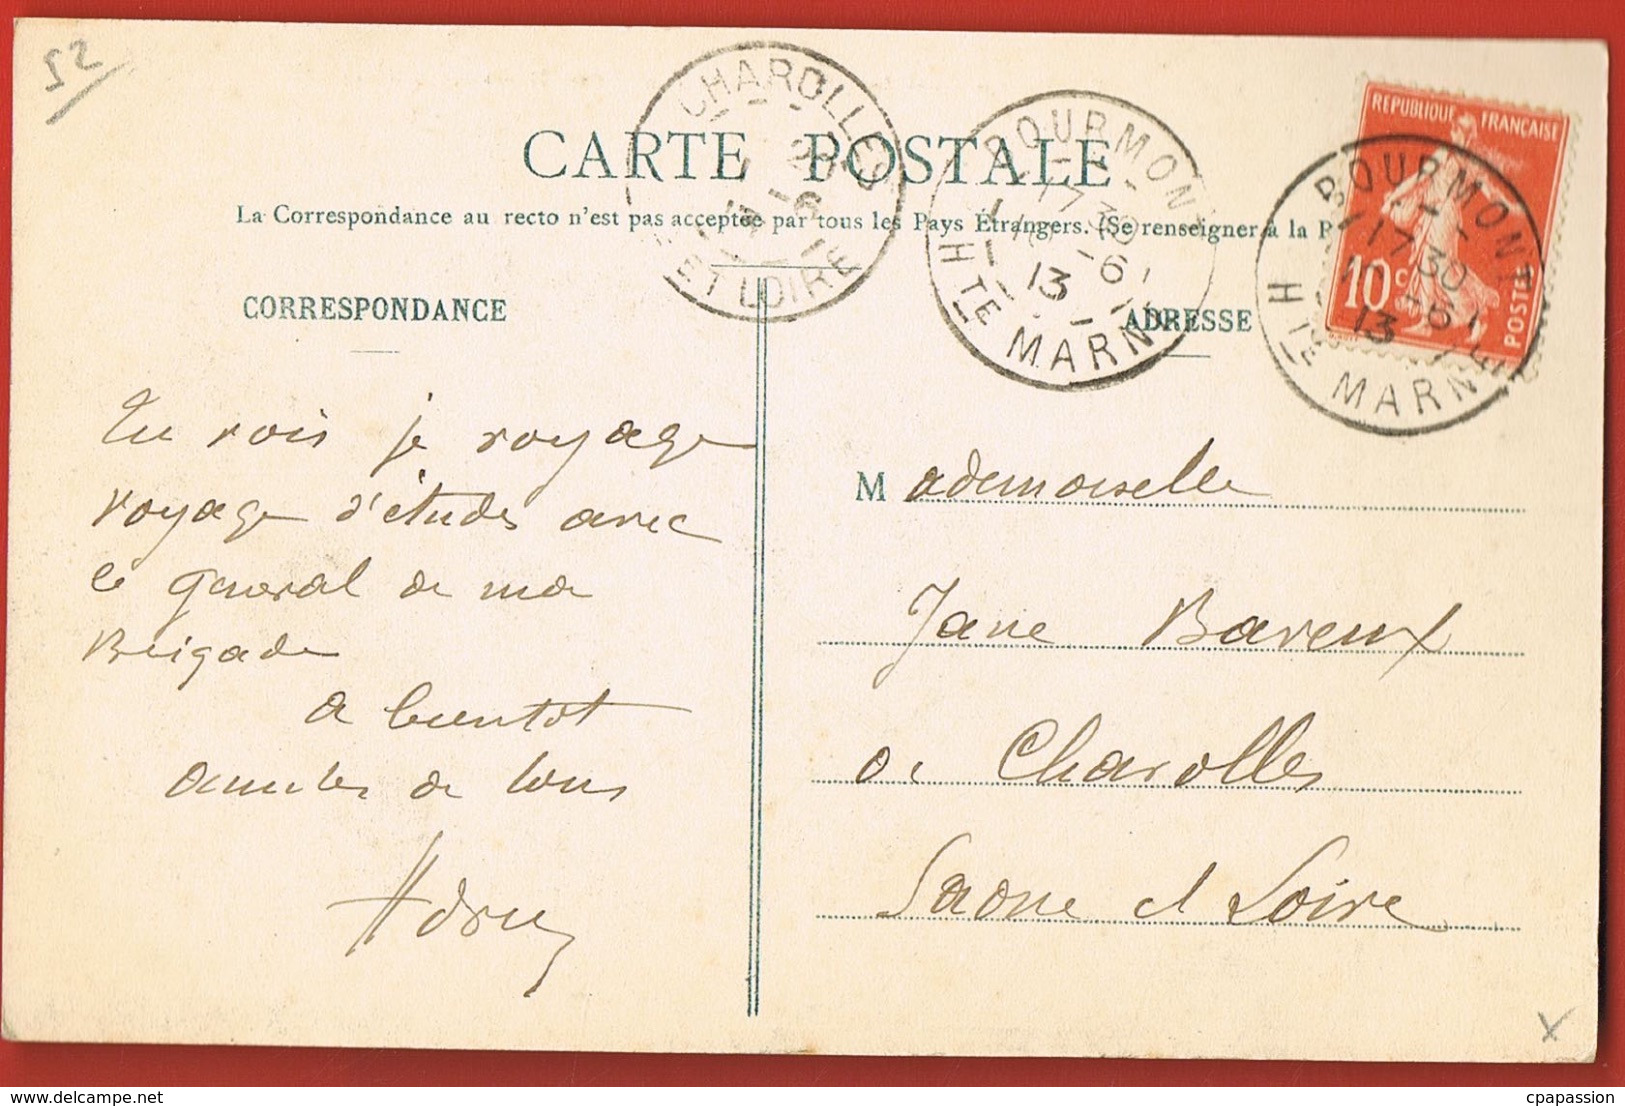 52
CHAROLLES
ET LOIRE
BOURMONT
17 30
-6
13
HTE MARNE
REPUBLIQUE FRANÇAISE
10c
POSTES
BOURMONT
17 30
-6
13
HTE MARNE
CARTE POSTALE
La Correspondance au recto n'est pas acceptée par tous les Pays Étrangers. (Se renseigner à la P
CORRESPONDANCE
ADRESSE
Tu vois je voyage
voyage d'études avec
le général de ma
Brigade
a bientot
amitiés de tous
Mademoiselle
Jane Baveux
de Charolles
Saone et Loire
x
cpapassion